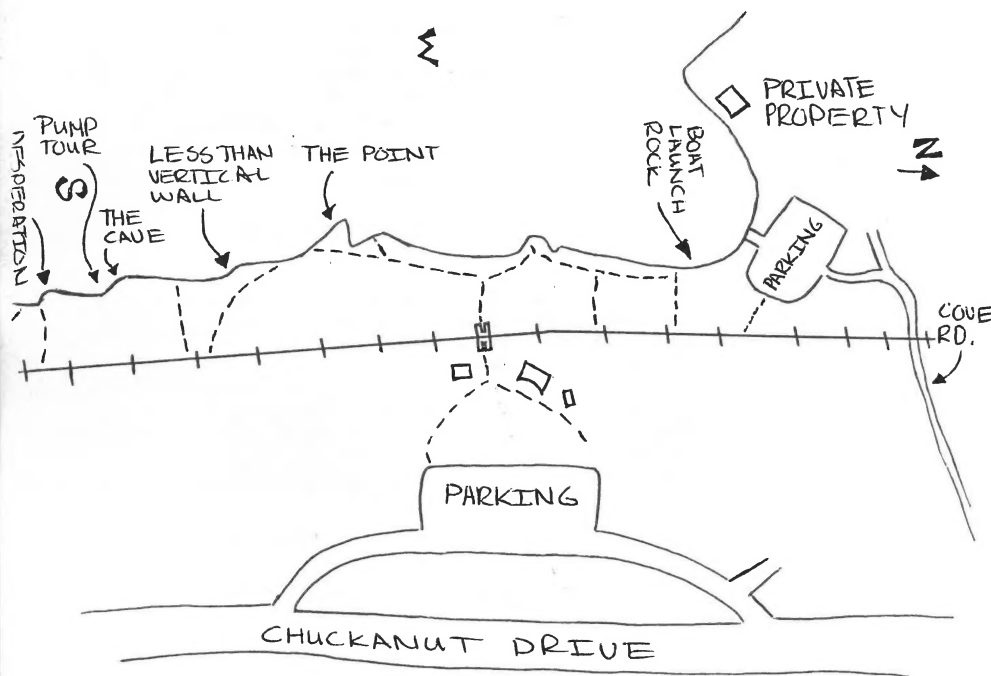 W
PRIVATE
PROPERTY
N
PUMP
TOUR
S
DESPERATION
THE
CAVE
LESS THAN
VERTICAL
WALL
THE POINT
BOAT
LAUNCH
ROCK
PARKING
COVE
RD.
PARKING
CHUCKANUT DRIVE